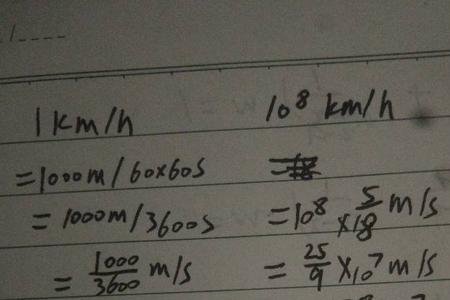 1 km/h
= 1000m / 60×60s
= 1000m / 3600s
= 1000/3600 m/s
10⁸ km/h
= 10⁸ × 5/18 m/s
= 25/9 × 10⁷ m/s